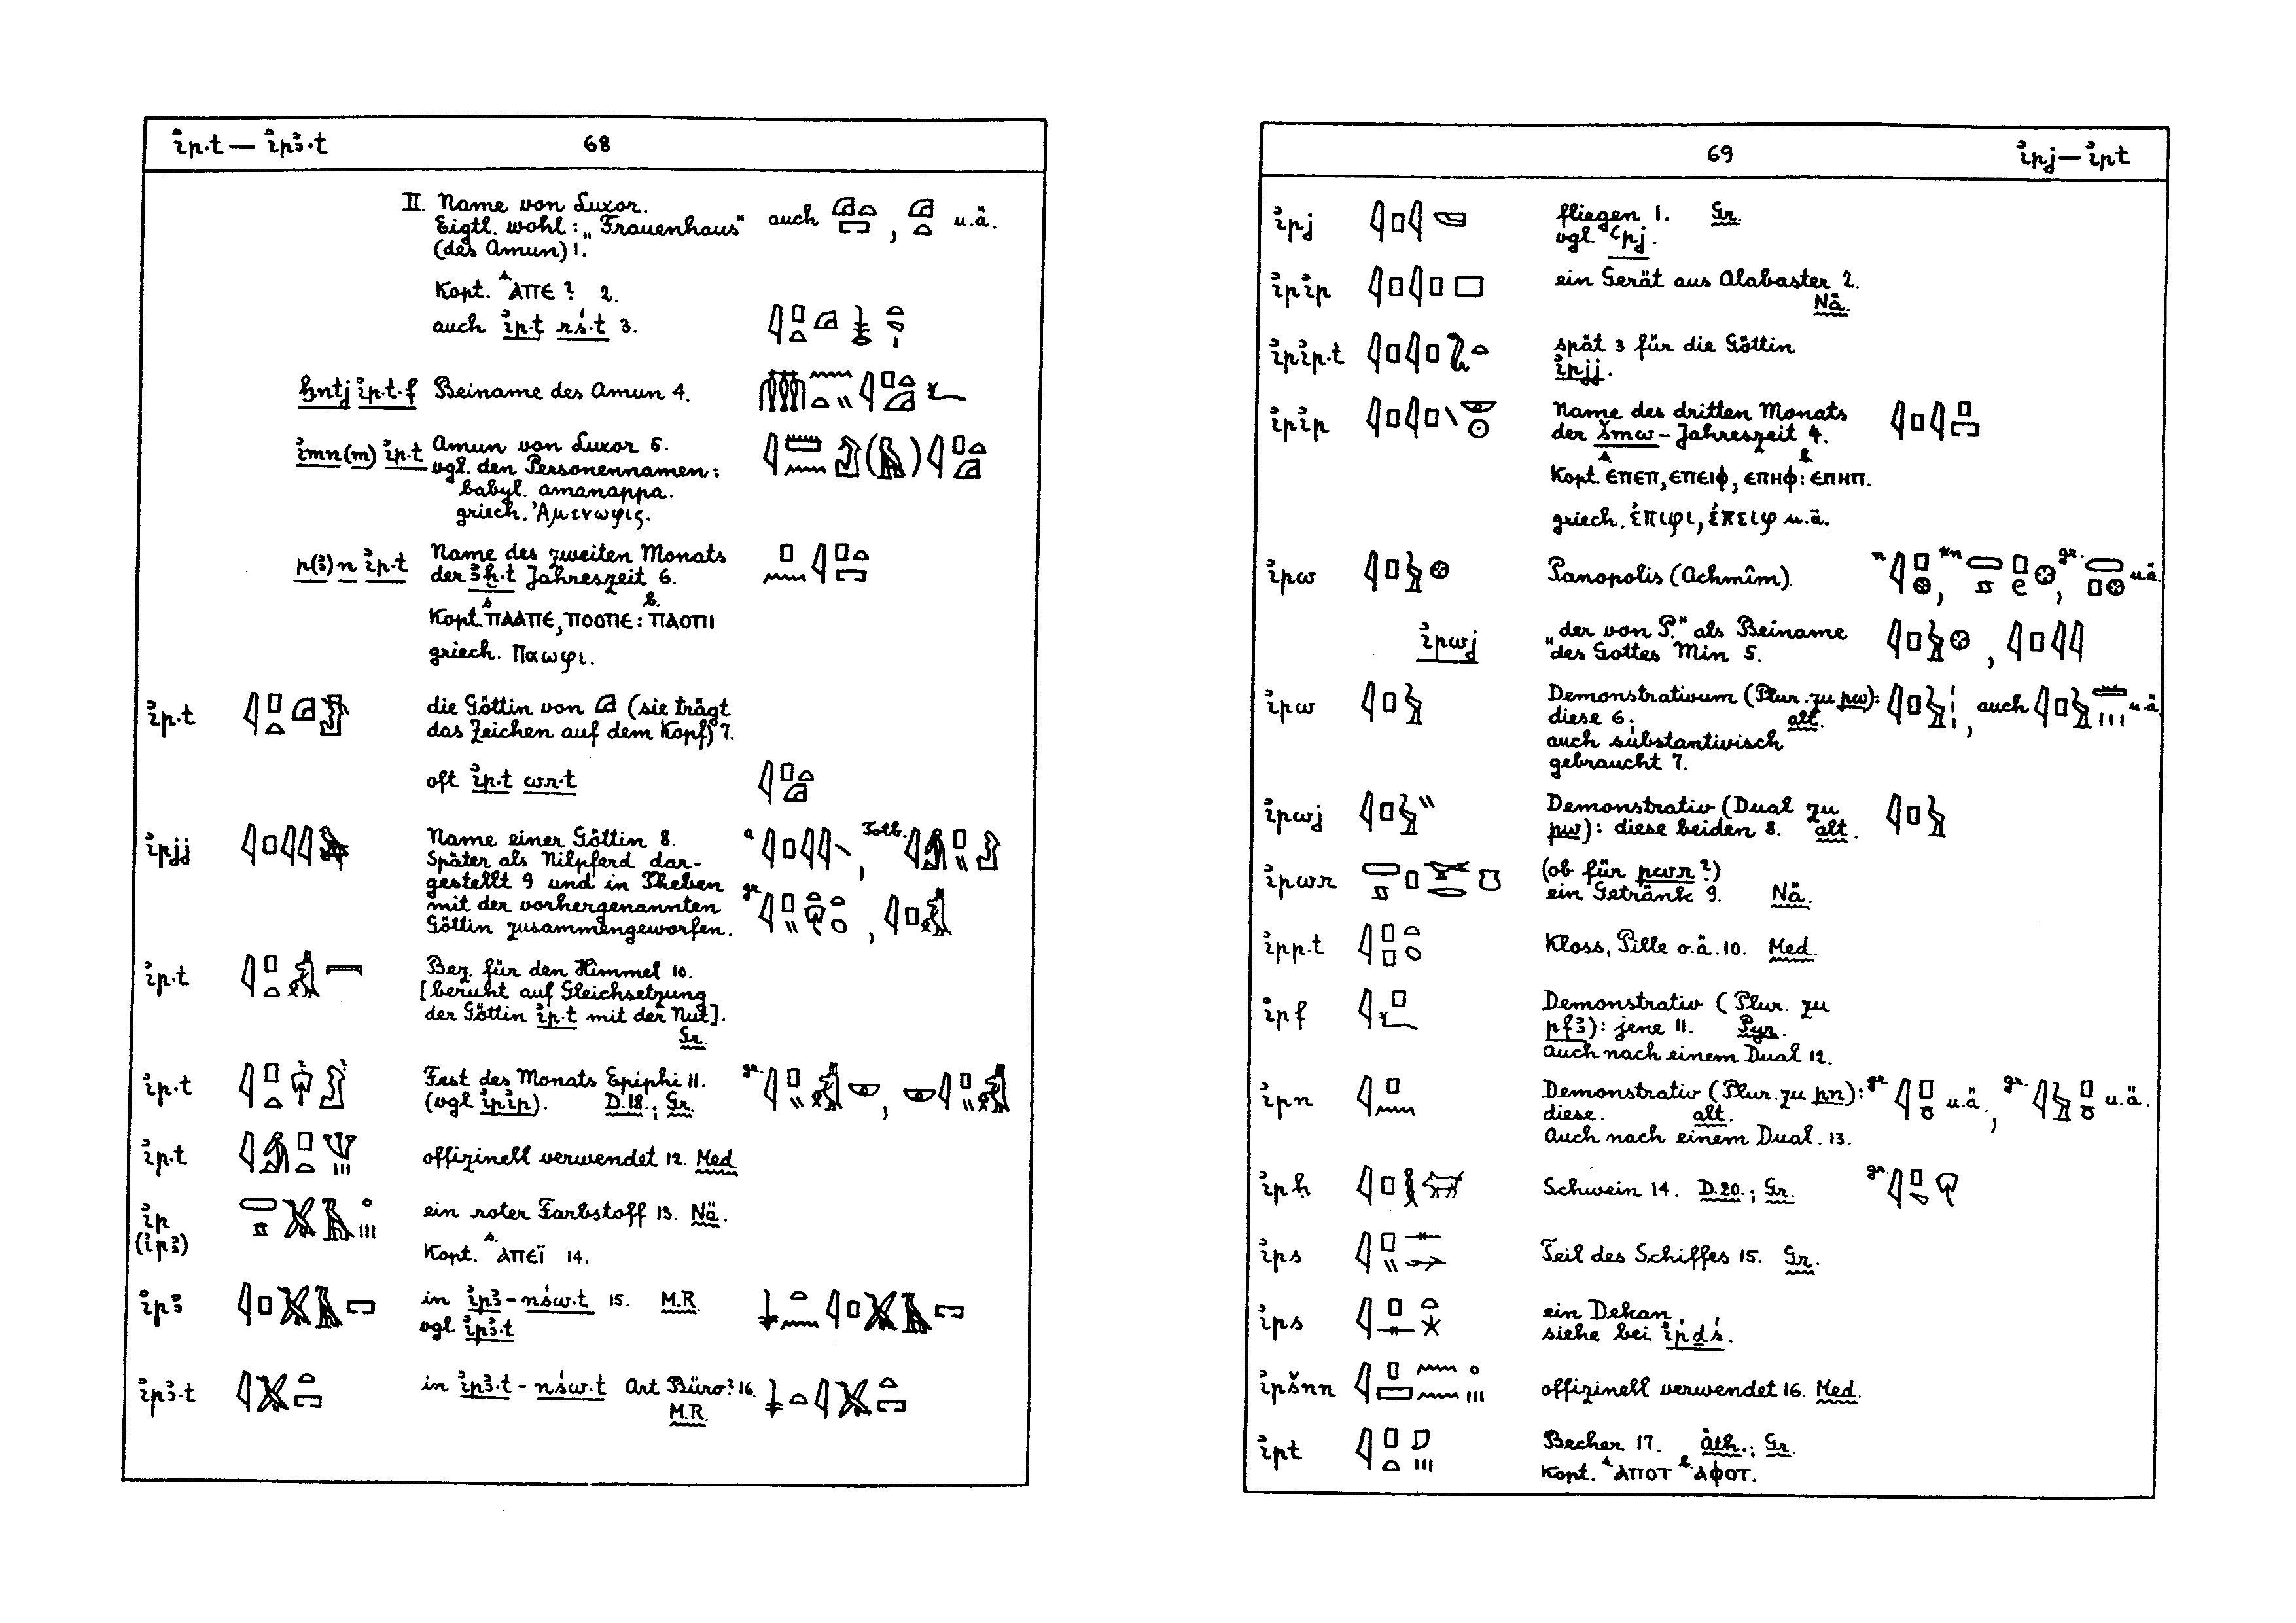 ı͗p·t — ı͗pꜣ·t 68
II. Name von Luxor. auch 𓉺𓏏𓉐, 𓉺𓏏 u.ä.
Eigtl. wohl: „Frauenhaus"
(des Amun) 1.
Kopt. ˢ ⲁⲡⲉ? 2.
auch ı͗p·t rś·t 3.
ḫntj ı͗p·t·f Beiname des Amun 4.
ı͗mn (m) ı͗p·t Amun von Luxor 5.
vgl. den Personennamen:
babyl. amanappa.
griech. Ἀμενωφις.
p(ꜣ) n ı͗p·t Name des zweiten Monats 𓊪𓈖𓇋𓊪𓏏𓉐
der ꜣḫ·t Jahreszeit 6.
Kopt. ˢ ⲡⲁⲁⲡⲉ, ⲡⲟⲟⲡⲉ: ᵇ ⲡⲁⲟⲡⲓ
griech. Παωφι.
ı͗p·t die Göttin von 𓉺 (sie trägt
das Zeichen auf dem Kopf) 7.
oft ı͗p·t wr·t 𓇋𓊪𓏏𓉺
ı͗pjj Name einer Göttin 8. a , Totb.
Später als Nilpferd dar-
gestellt 9 und in Theben gr. ,
mit der vorhergenannten
Göttin zusammengeworfen.
ı͗p·t Bez. für den Himmel 10.
[beruht auf Gleichsetzung
der Göttin ı͗p·t mit der Nut].
Gr.
ı͗p·t Fest des Monats Epiphi 11. gr. ,
(vgl. ı͗pı͗p). D.18.; Gr.
ı͗p·t offizinell verwendet 12. Med.
ı͗p ein roter Farbstoff 13. Nä.
(ı͗pꜣ)
Kopt. ˢ ⲁⲡⲉⲓ̈ 14.
ı͗pꜣ in ı͗pꜣ-nśw·t 15. M.R.
vgl. ı͗pꜣ·t
ı͗pꜣ·t in ı͗pꜣ·t-nśw·t Art Büro? 16.
M.R.
69 ı͗pj — ı͗pt
ı͗pj fliegen 1. Gr.
vgl. ꜥpj.
ı͗pı͗p 𓇋𓊪𓇋𓊪 ein Gerät aus Alabaster 2.
Nä.
ı͗pı͗p·t spät 3 für die Göttin
ı͗pjj.
ı͗pı͗p Name des dritten Monats 𓇋𓊪𓇋𓊪𓉐
der šmw-Jahreszeit 4.
Kopt. ˢ ⲉⲡⲉⲡ, ⲉⲡⲉⲓⲫ, ⲉⲡⲏⲫ: ᵇ ⲉⲡⲏⲡ.
griech. ἐπιφι, ἐπειφ u.ä.
ı͗pw 𓇋𓊪𓅱𓊖 Panopolis (Achmîm). n , *n , gr. u.ä.
ı͗pwj „der von P." als Beiname
des Gottes Min 5.
ı͗pw 𓇋𓊪𓅱 Demonstrativum (Plur. zu pw): , auch u.ä.
diese 6; alt.
auch substantivisch
gebraucht 7.
ı͗pwj 𓇋𓊪𓅱𓏭 Demonstrativ (Dual zu 𓇋𓊪𓅱
pw): diese beiden 8. alt.
ı͗pwr (ob für pwr?)
ein Getränk 9. Nä.
ı͗pp·t Kloss, Pille o.ä. 10. Med.
ı͗pf 𓇋𓊪𓆑 Demonstrativ (Plur. zu
pfꜣ): jene 11. Pyr.
Auch nach einem Dual 12.
ı͗pn 𓇋𓊪𓈖 Demonstrativ (Plur. zu pn): gr. u.ä., gr. u.ä.
diese. alt.
Auch nach einem Dual. 13.
ı͗pḥ Schwein 14. D.20.; Gr. gr.
ı͗ps Teil des Schiffes 15. Gr.
ı͗ps ein Dekan
siehe bei ı͗pdś.
ı͗pšnn offizinell verwendet 16. Med.
ı͗pt Becher 17. äth.; Gr.
Kopt. ˢ ⲁⲡⲟⲧ ᵇ ⲁⲫⲟⲧ.